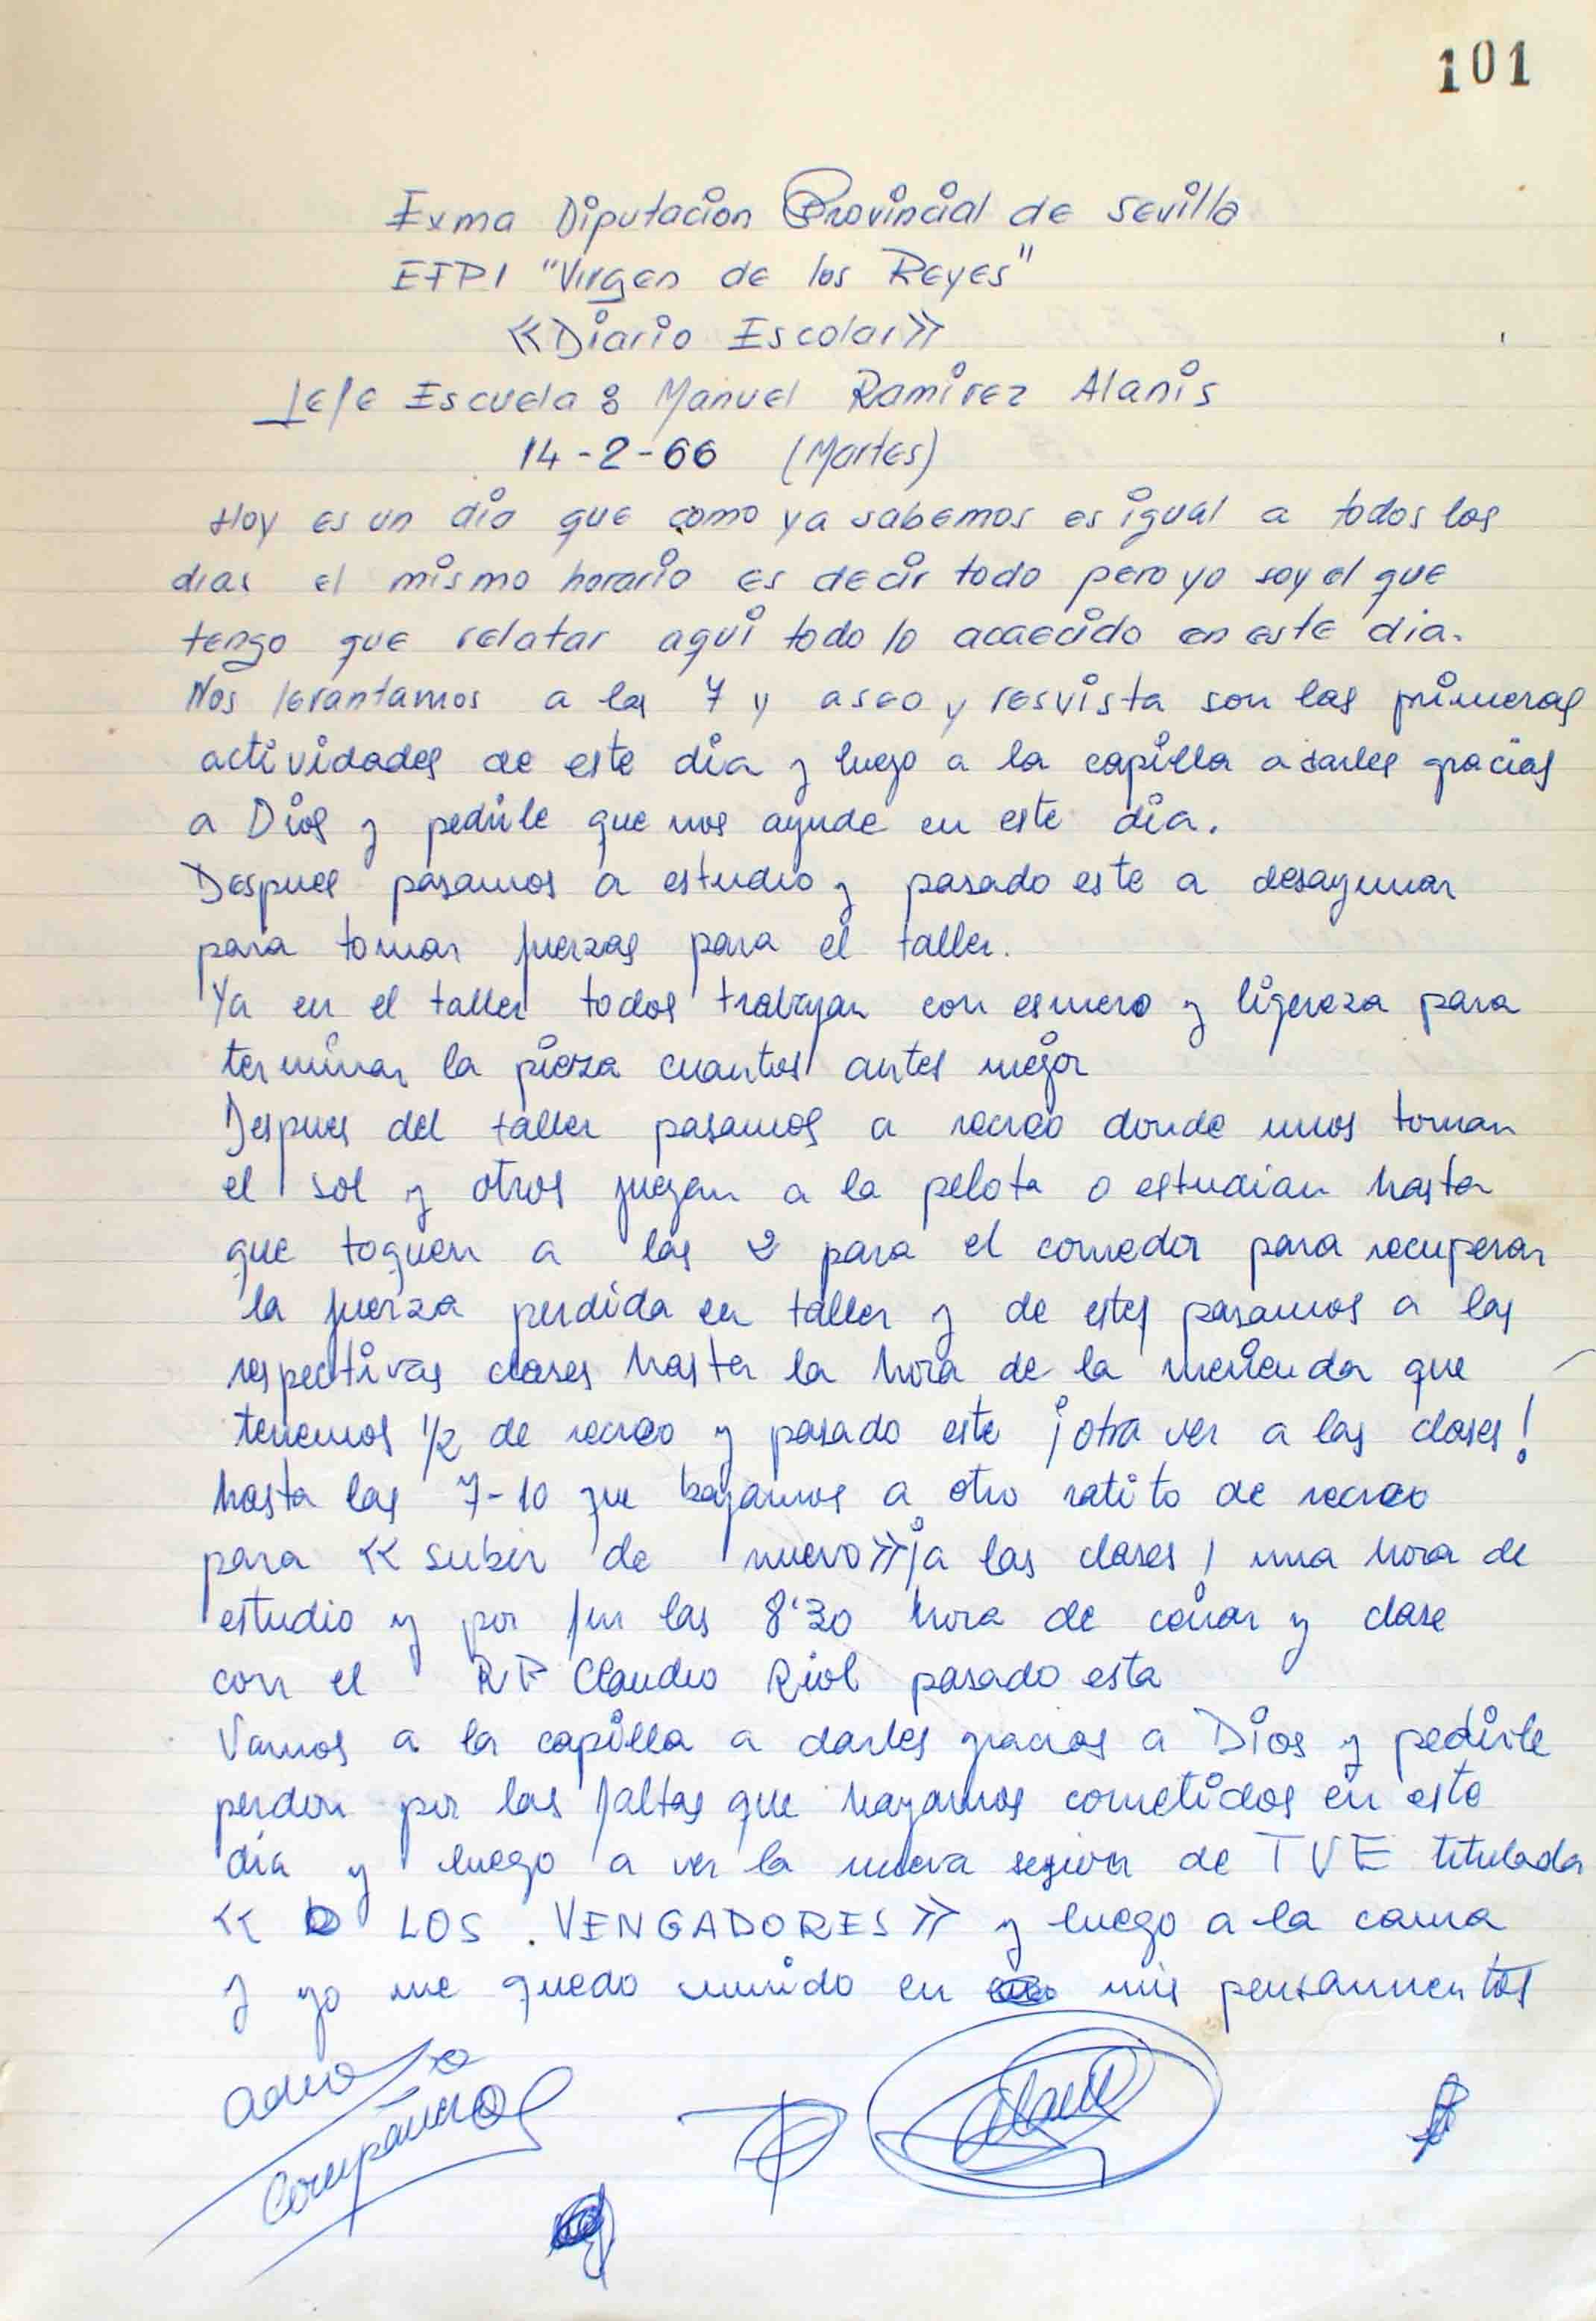 101
Exma Diputacion Provincial de Sevilla
EFPI "Virgen de los Reyes"
«Diario Escolar»
Jefe Escuela: Manuel Ramirez Alanis
14-2-66 (Martes)
Hoy es un dia que como ya sabemos es igual a todos los
dias el mismo horario es decir todo pero yo soy el que
tengo que relatar aqui todo lo acaecido en este dia.
Nos levantamos a las 7 y aseo y resvista son las primeras
actividades de este dia y luego a la capilla a darles gracias
a Dios y pedirle que nos ayude en este dia.
Despues pasamos a estudio y pasado este a desayunar
para tomar fuerzas para el taller.
Ya en el taller todos trabajan con esmero y ligereza para
terminar la pieza cuantos antes mejor
Despues del taller pasamos a recreo donde unos toman
el sol y otros juegan a la pelota o estudian hasta
que toquen a las 2 para el comedor para recuperar
la fuerza perdida en taller y de estes pasamos a las
respectivas clases hasta la hora de la merienda que
tenemos 1/2 de recreo y pasado este ¡otra vez a las clases!
hasta las 7-10 que bajamos a otro ratito de recreo
para «subir de nuevo» ¡a las clases! una hora de
estudio y por fin las 8'30 hora de cenar y clase
con el RP Claudio Riol pasado esta
Vamos a la capilla a darles gracias a Dios y pedirle
perdon por las faltas que hayamos cometidos en este
dia y luego a ver la nueva sesion de TVE titulada
« LOS VENGADORES» y luego a la cama
y yo me quedo sumido en mis pensamientos
adios
compañeros